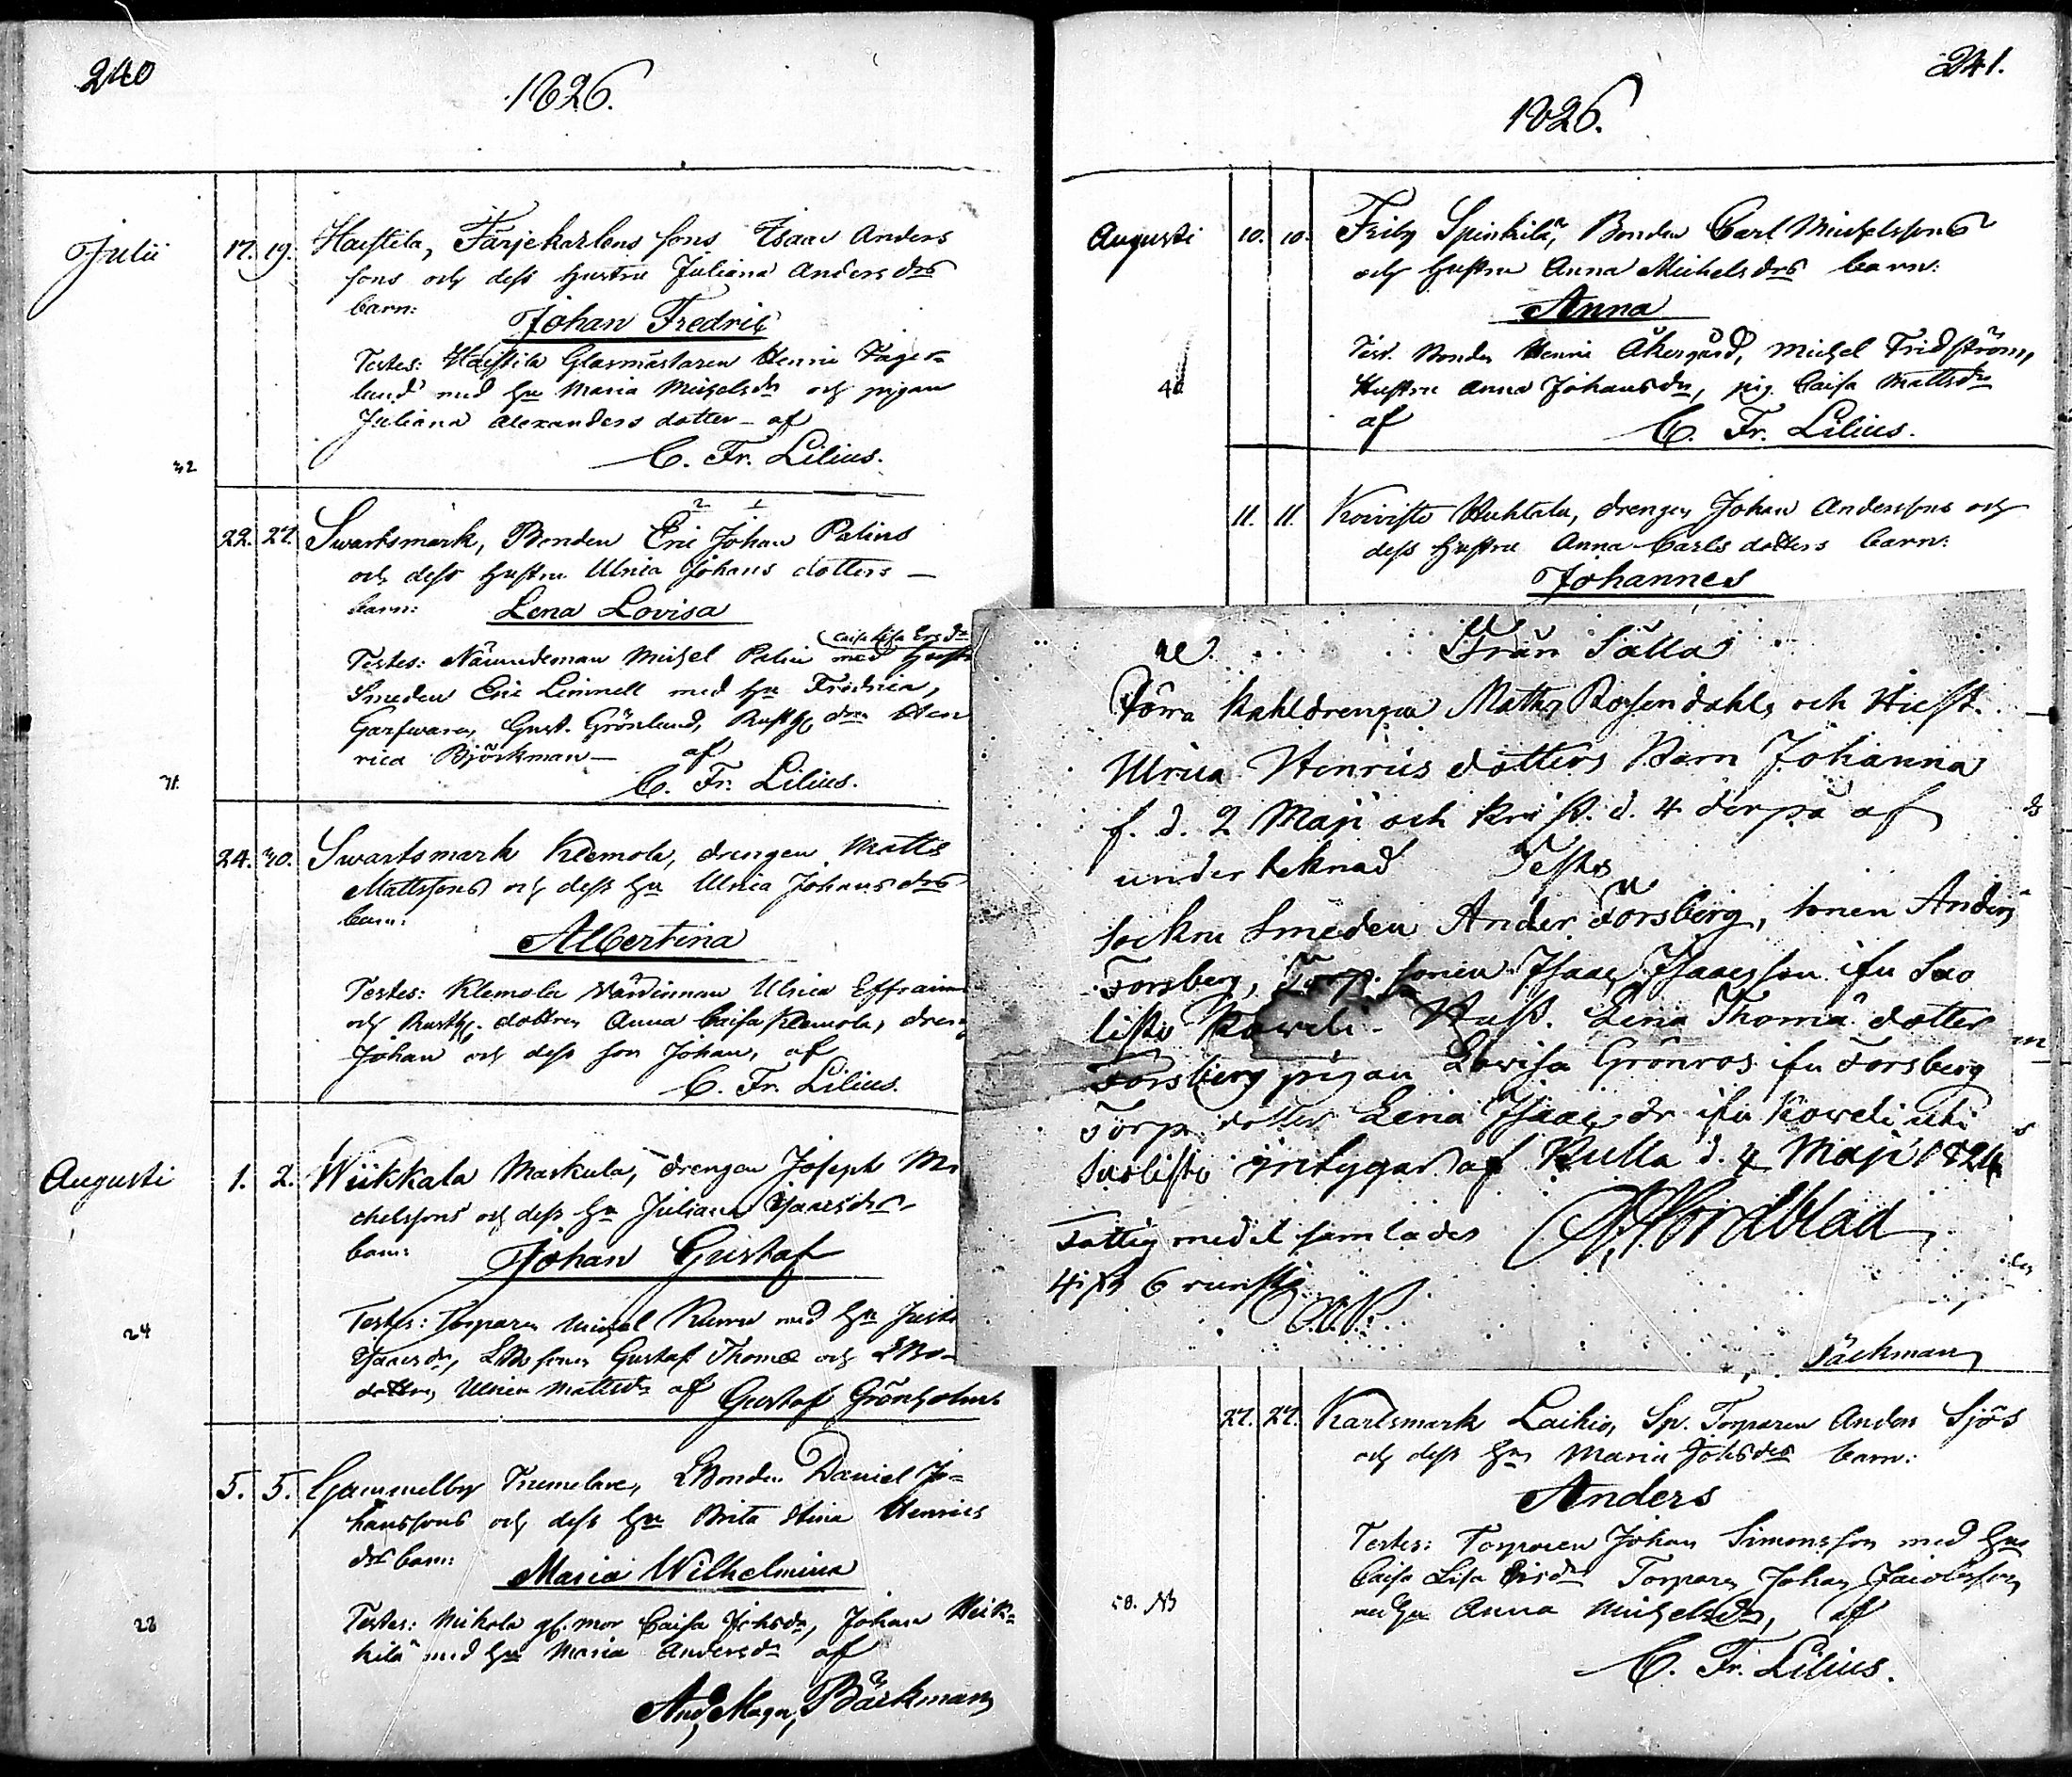 240
1826.
Julii
17. 19. Haistila, Färjekarlens sons Isaac Anders
sons och dess hustru Juliana Anders drs
barn:
Johan Fredric
Testes: Haistila Glasmästaren Henric Fager=
lund med hu Maria Michelsdr och pigan
Juliana Alexanders dotter – af
C. Fr. Lilius.
32
22. 27. Swartsmark, Bonden Eric Johan Palins
2 1
och dess hustru Ulrica Johans dotters –
barn: Lena Lovisa
Caisa Lisa Ersdr
Testes: Nämndeman Michel Palin med hust
Smeden Eric Linnell med hu Fredrica,
Garfwaren Gust. Grönlund, Rusth dr Hen
rica Björkman – af
C. Fr. Lilius.
31.
24. 30. Swartsmark Klemola, drengen Matts
Mattssons och dess hu Ulrica Johans drs
barn:
Albertina
Testes: Klemola Wärdinnan Ulrica Effraims
och Rusth. dottren Anna Caisa Klemola, dren
Johan och dess son Johan, af
C. Fr. Lilius.
Augusti
1. 2. Wiikkala Markula, drengen Joseph Mi
chelssons och dess hu Juliana Isaacsdrs
barn:
Johan Gustaf
Testes: Torparen Michel med hu
Isaacsdr, LBs sonen Gustaf Thomæ och LBo
dottren Ulrica Mattsdr af Gustaf Grönholm.
24
5. 5. Gammelby LBonden Daniel Jo=
hanssons och dess hu Brita Stina Henrics
drs barn:
Maria Wilhelmina
Testes: Mikola gl. mor Caisa Johsdr, Johan Heik=
kilä med hu Maria Andersdr af
28
And. Magn. Bäckman
241.
1826.
Augusti
10. 10. Friby Spinkilä, Bonden Carl Michelssons
och hustru Anna Michels drs barn:
Anna
Test. Bonden Henric Åkergård, Michel Fridström,
Hustru Anna Johansdr, pig. Caisa Mattsdr
af C. Fr. Lilius.
40
11. 11. Koivisto Huhtala, drengen Johan Anderssons och
dess hustru Anna Carls dotters barn:
Johannes
Från Sälla
Förra Kahldrengen Mathz Rosendahls och Hust.
Ulrica Henrics dotters Barn Johanna
f. d. 2 Maji och krist. d. 4 derpå af
underteknad Testes
Sockne Smeden Ander Forsberg, Sonen Anders
Forsberg, Torp. sonen Isaac Isaacsson ifrn Suo
listo Kaweli. Hust. Lena Thomæ dotter
Forsberg pigan Lowisa Grönros ifrn Forsberg
Torp. dotter Lena Isaacs dr ifrn Koweli uti
Suolisto intygar af Kulla d. 4 Maji 1826
Fattig medel samlades Nordblad
6 runst
Bäckman
27. 27. Karlsmark Laikio, Sp. Torparen Anders Sjös
och dess hus Maria Johsdrs barn:
Anders
Testes: Torparen Johan Simonsson med hus
Caisa Lisa Ersdr Torparen Johan Jacobsson
med hu Anna Michelsdr, af
C. Fr. Lilius.